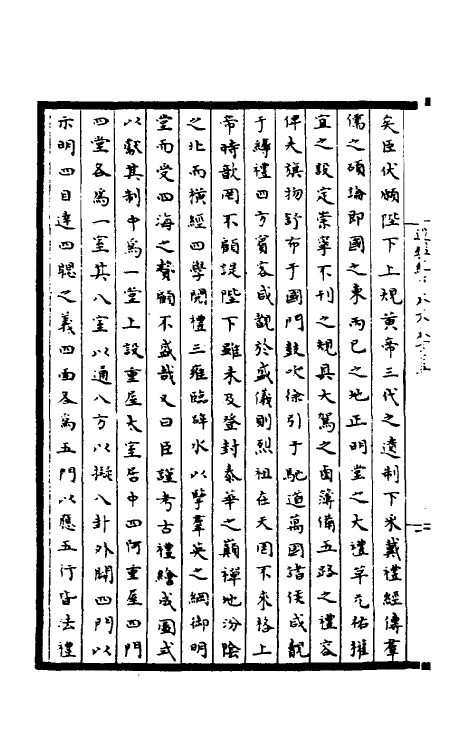 矣臣伏願陛下上規黃帝三代之遺制下采戴禮經傳羣
儒之碩論即國之東丙巳之地正明堂之大禮草元祐權
宜之設定崇寧不刊之規具大駕之鹵簿備五路之禮容
俾夫旗物舒布于國門鼓吹徐引于馳道萬國諸侯咸覩
于縟禮四方賓客咸觀於盛儀則烈祖在天罔不來格上
帝時歆罔不顧諟陛下雖未及登封泰華之巔禪地汾陰
之北而橫經四學閱禮三雍臨辟水以擊羣英之綱御明
堂而受四海之贄顧不盛哉又曰臣謹考古禮繪成圖式
以獻其制中為一堂上設重屋太室居中四阿重屋四門
四堂各為一室其八室以通八方以擬八卦外闢四門以
示明四目達四聰之義四面各為五門以應五行皆法禮